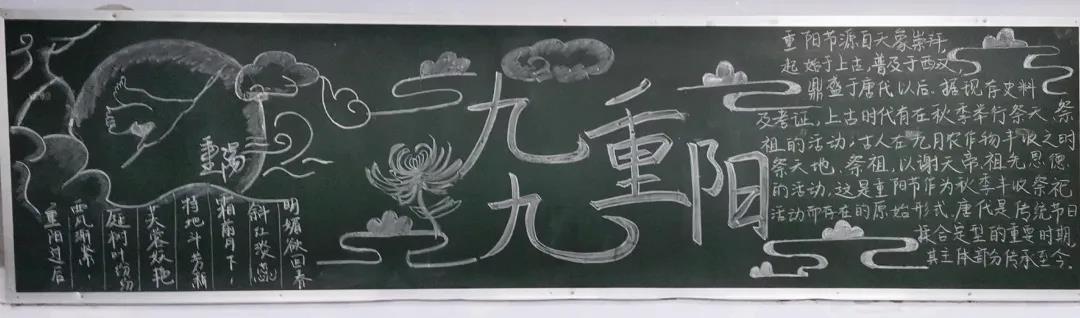 重陽
重阳过后
西风渐紧，
庭树叶纷纷
芙蓉妖艳
特地斗芳新
霜前月下，
斜红淡蕊
明媚欲回春
九九
重阳
重阳节源自天象崇拜，
起始于上古，普及于西汉，
鼎盛于唐代以后。据现存史料
及考证，上古时代有在秋季举行祭天、祭
祖的活动；古人在九月农作物丰收之时
祭天地，祭祖，以谢天帝，祖先恩德
的活动，这是重阳节作为秋季丰收祭祀
活动而存在的原始形式。唐代是传统节日
揉合定型的重要时期，
其主体部分传承至今。